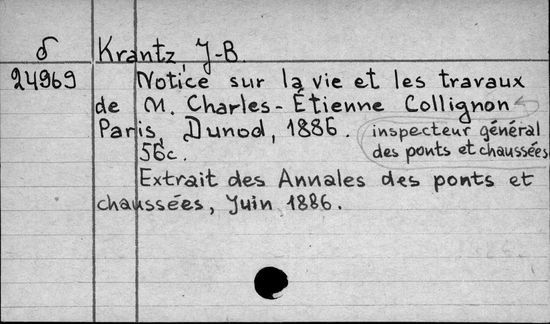 δ Krantz, J-B.
24969 Notice sur la vie et les travaux
de M. Charles-Étienne Collignon
Paris, Dunod, 1886. inspecteur général
56c. des ponts et chaussées
Extrait des Annales des ponts et
chaussées, Juin 1886.